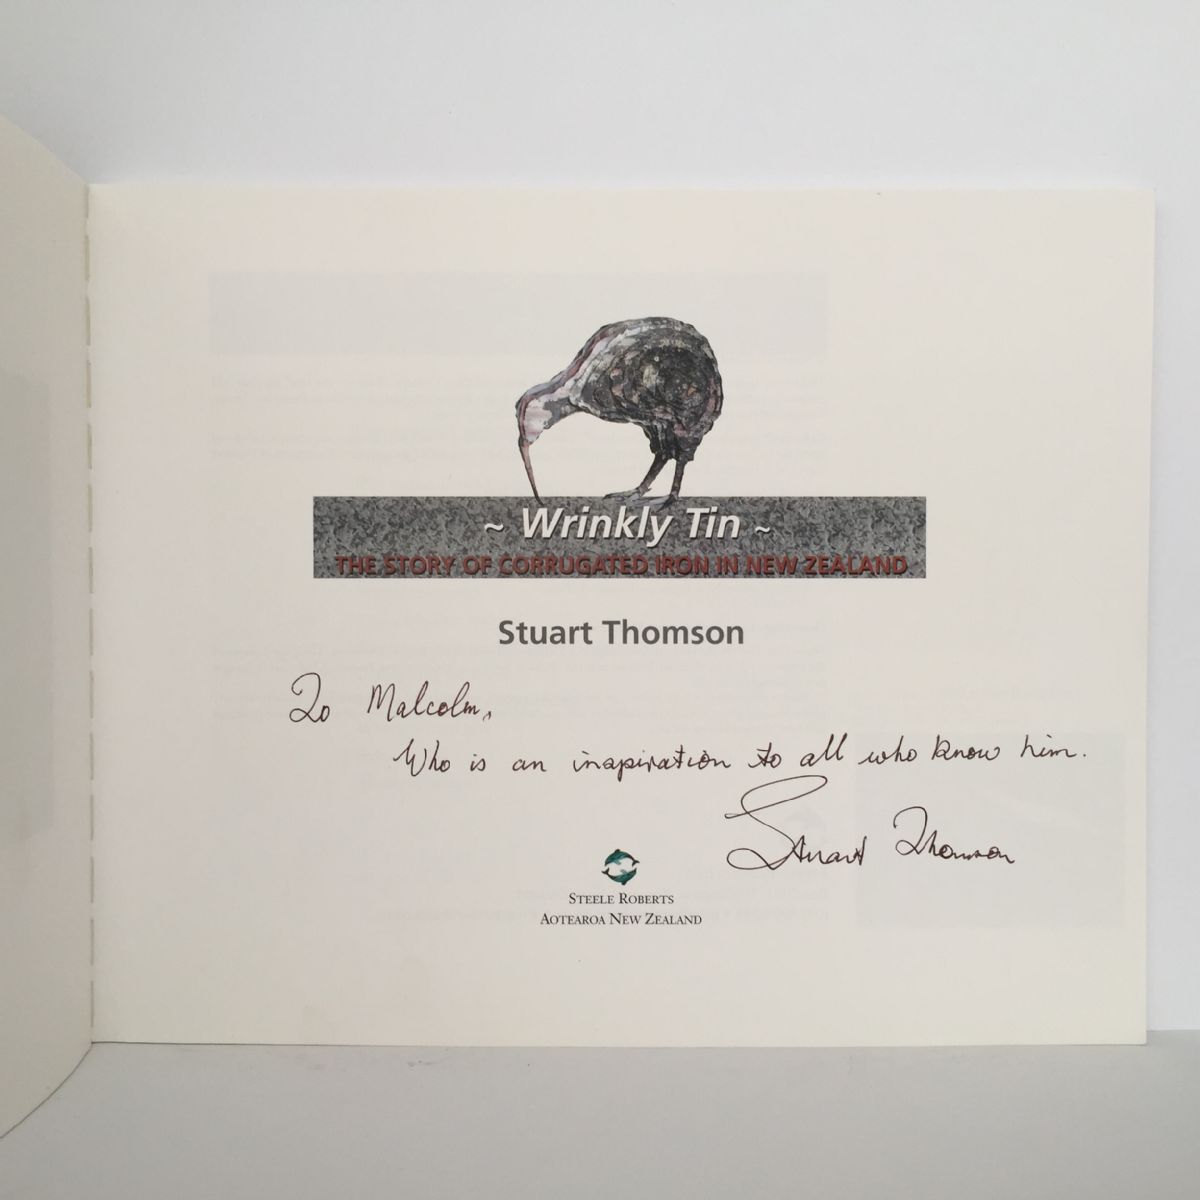 ~ Wrinkly Tin ~
THE STORY OF CORRUGATED IRON IN NEW ZEALAND
Stuart Thomson
To Malcolm,
Who is an inspiration to all who know him.
Stuart Thomson
STEELE ROBERTS
AOTEAROA NEW ZEALAND